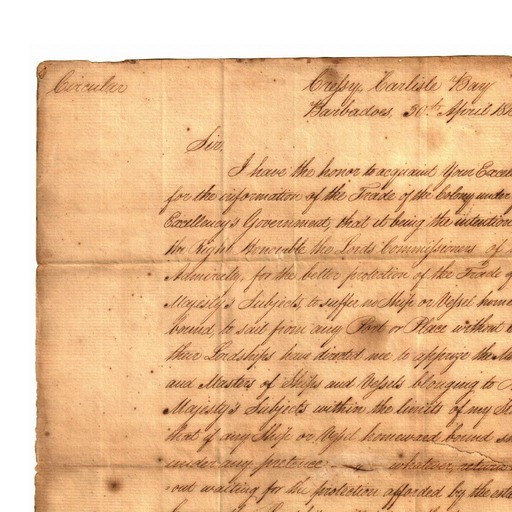 Circular
Cressy, Carlisle Bay
Barbadoes, 30th April 18
Sir,
I have the honor to acquaint Your Excel
for the information of the Trade of the Colony under
Excellency's Government, that it being the intention
the Right Honorable the Lords Commissioners of
Admiralty, for the better protection of the Trade of
Majesty's Subjects, to suffer no Ship or Vessel home
bound, to sail from any Port or Place without
their Lordships have directed me to apprize the
and Masters of Ships and Vessels belonging to
Majesty's Subjects within the limits of my
that if any Ship or Vessel homeward bound
under any pretence whatever, return
out waiting for the protection afforded by the